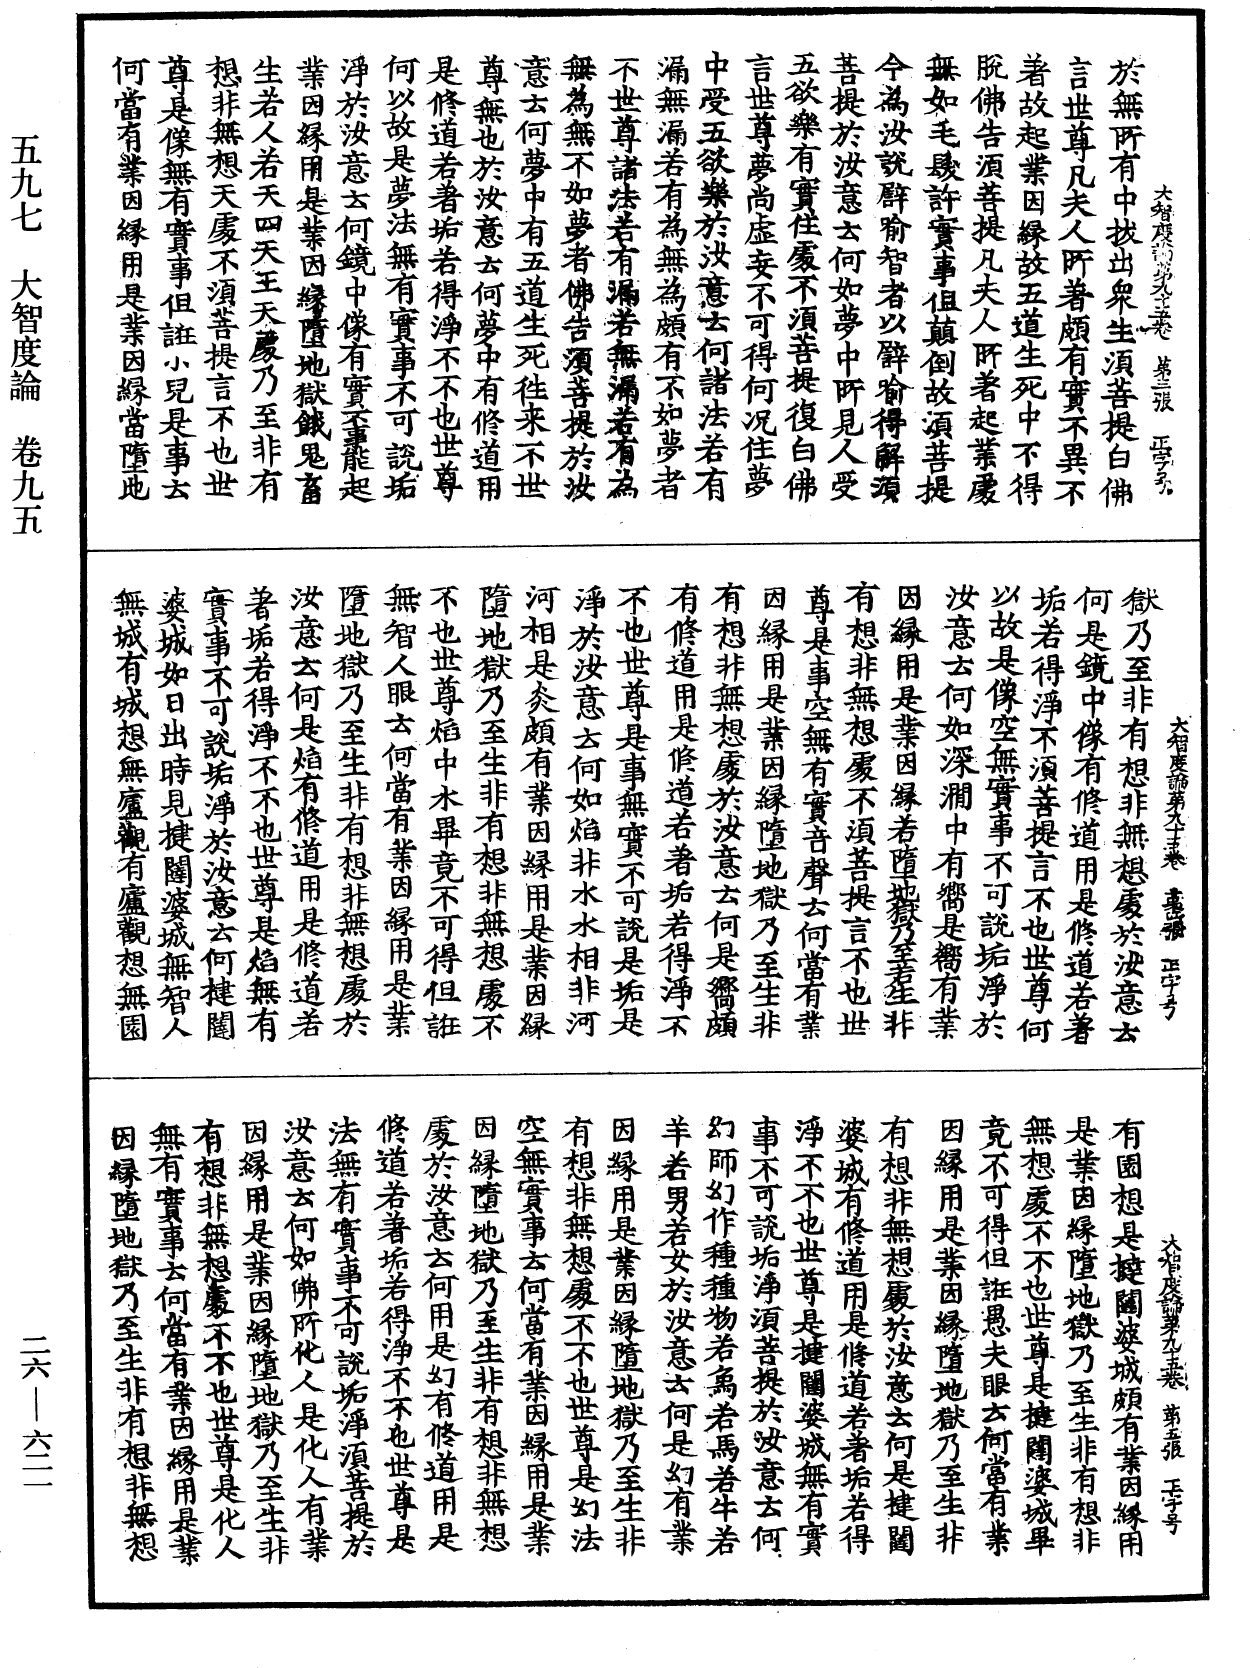 大智度論第九十五卷 第三張 正字号
於無所有中拔出衆生須菩提白佛
言世尊凡夫人所著頗有實不異不
著故起業因縁故五道生死中不得
脫佛告須菩提凡夫人所著起業處
無如毛髮許實事但顛倒故須菩提
今為汝說譬喻智者以譬喻得解須
菩提於汝意云何如夢中所見人受
五欲樂有實住處不須菩提復白佛
言世尊夢尚虛妄不可得何況住夢
中受五欲樂於汝意云何諸法若有
漏無漏若有為無為頗有不如夢者
不世尊諸法若有漏若無漏若有為
無為無不如夢者佛告須菩提於汝
意云何夢中有五道生死徃来不世
尊無也於汝意云何夢中有修道用
是修道若著垢若得淨不不也世尊
何以故是夢法無有實事不可說垢
淨於汝意云何鏡中像有實事不能起
業因縁用是業因縁墮地獄餓鬼畜
生若人若天四天王天處乃至非有
想非無想天處不須菩提言不也世
尊是像無有實事但誑小兒是事云
何當有業因縁用是業因縁當墮地
大智度論第九十五卷 第四張 正字号
獄乃至非有想非無想處於汝意云
何是鏡中像有修道用是修道若著
垢若得淨不須菩提言不也世尊何
以故是像空無實事不可說垢淨於
汝意云何如深澗中有嚮是嚮有業
因縁用是業因縁若墮地獄乃至若生非
有想非無想處不須菩提言不也世
尊是事空無有實音聲云何當有業
因縁用是業因縁墮地獄乃至生非
有想非無想處於汝意云何是嚮頗
有修道用是修道若著垢若得淨不
不也世尊是事無實不可說是垢是
淨於汝意云何如焰非水水相非河
河相是炎頗有業因縁用是業因縁
墮地獄乃至生非有想非無想處不
不也世尊焰中水畢竟不可得但誑
無智人眼云何當有業因縁用是業
墮地獄乃至生非有想非無想處於
汝意云何是焰有修道用是修道若
著垢若得淨不不也世尊是焰無有
實事不可說垢淨於汝意云何揵闥
婆城如日出時見揵闥婆城無智人
無城有城想無廬觀有廬觀想無園
大智度論第九十五卷 第五張 正字号
有園想是揵闥婆城頗有業因縁用
是業因縁墮地獄乃至生非有想非
無想處不不也世尊是揵闥婆城畢
竟不可得但誑愚夫眼云何當有業
因縁用是業因縁墮地獄乃至生非
有想非無想處於汝意云何是揵闥
婆城有修道用是修道若著垢若得
淨不不也世尊是揵闥婆城無有實
事不可說垢淨須菩提於汝意云何
幻師幻作種種物若烏若馬若牛若
羊若男若女於汝意云何是幻有業
因縁用是業因縁墮地獄乃至生非
有想非無想處不不也世尊是幻法
空無實事云何當有業因縁用是業
因縁墮地獄乃至生非有想非無想
處於汝意云何用是幻有修道用是
修道若著垢若得淨不不也世尊是
法無有實事不可說垢淨須菩提於
汝意云何如佛所化人是化人有業
因縁用是業因縁墮地獄乃至生非
有想非無想處不不也世尊是化人
無有實事云何當有業因縁用是業
因縁墮地獄乃至生非有想非無想
五九七 大智度論 卷九五
二六—六二一